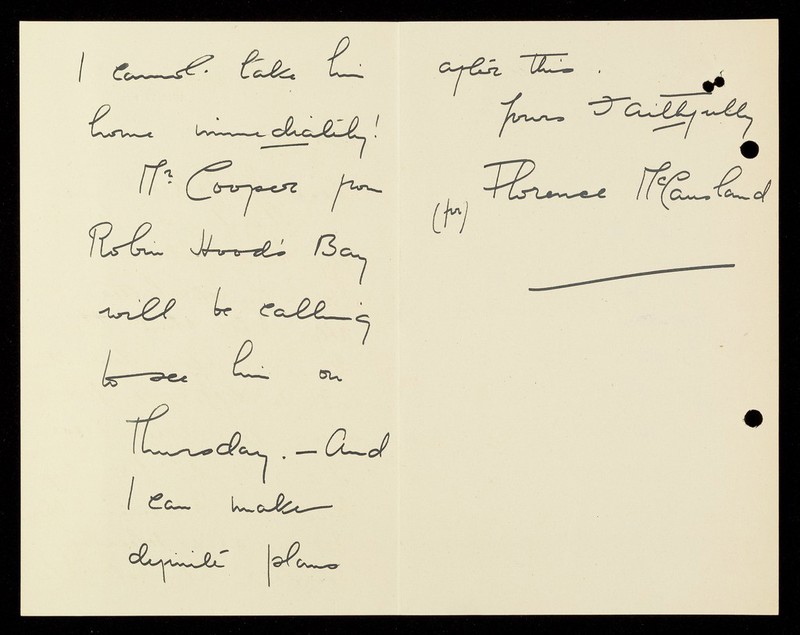 I cannot take him
home immediately!
Mr. Cooper from
Robin Hood's Bay
will be calling
to see him on
Thursday. — And
I can make
definite plans
after this.
Yours Faithfully
Florence McCausland
(for)